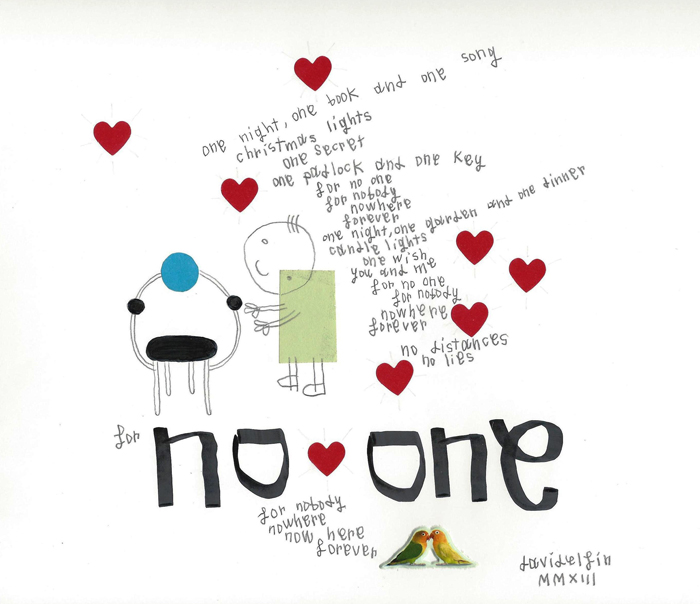 one night, one book and one song
christmas lights
one secret
one padlock and one key
for no one
for nobody
nowhere
forever
one night, one garden and one dinner
candle lights
one wish
you and me
for no one
for nobody
nowhere
forever
no distances
no lies
for no one
for nobody
nowhere
now here
forever
davidelfin
MMXIII